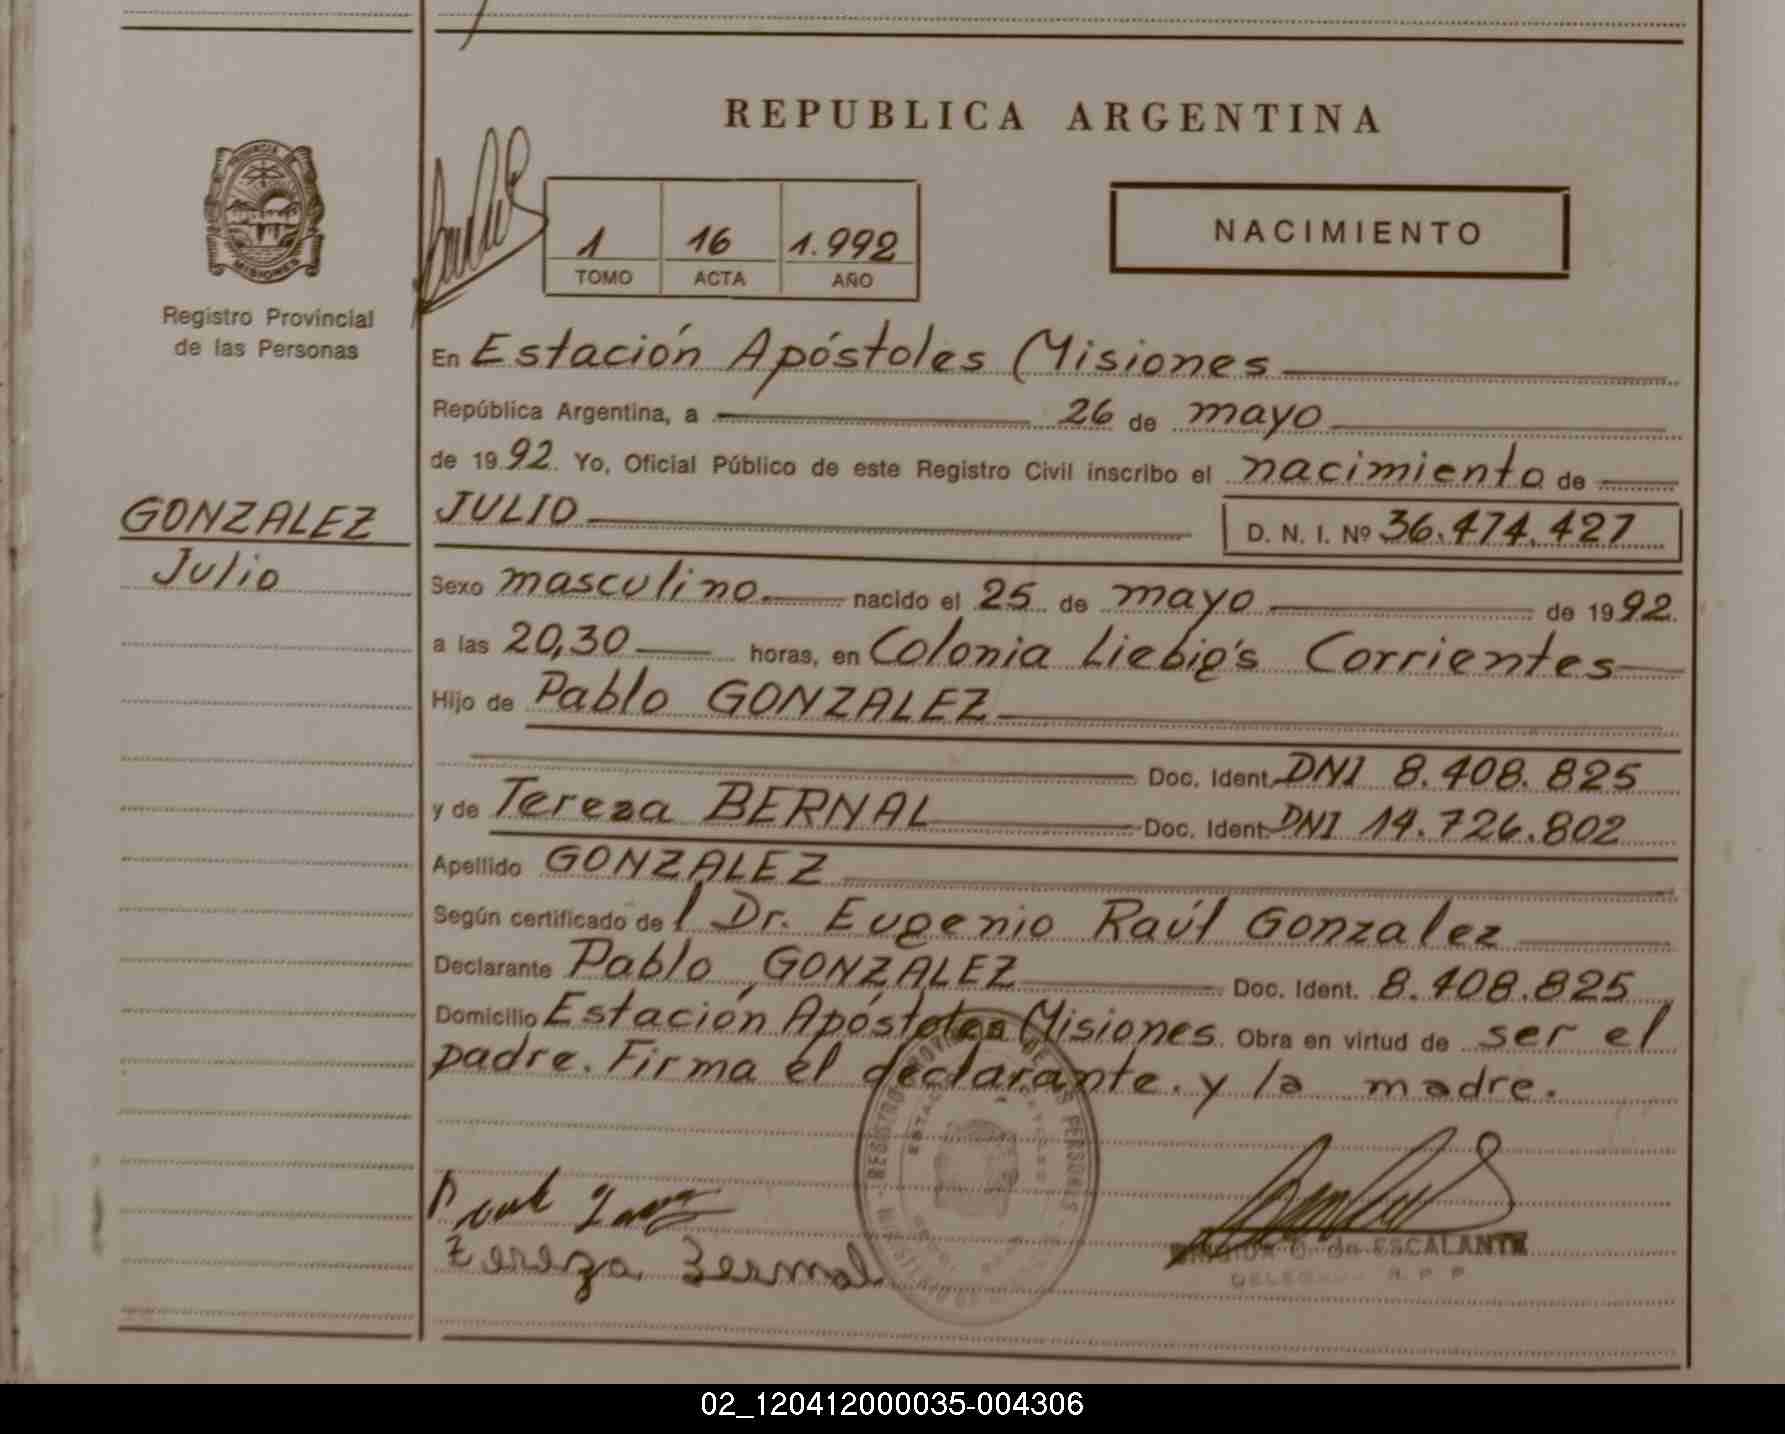 REPUBLICA ARGENTINA
PROVINCIA DE
MISIONES
Registro Provincial
de las Personas
1 16 1.992
TOMO ACTA AÑO
NACIMIENTO
En Estación Apóstoles Misiones
República Argentina, a 26 de mayo
de 1992. Yo, Oficial Público de este Registro Civil inscribo el nacimiento de
GONZALEZ
Julio
JULIO D. N. I. Nº 36.474.427
Sexo masculino nacido el 25 de mayo de 1992.
a las 20,30 horas, en Colonia Liebig's Corrientes
Hijo de Pablo GONZALEZ
Doc. Ident. DNI 8.408.825
y de Tereza BERNAL Doc. Ident. DNI 14.726.802
Apellido GONZALEZ
Según certificado del Dr. Eugenio Raúl Gonzalez
Declarante Pablo GONZALEZ Doc. Ident. 8.408.825
Domicilio Estación Apóstoles Misiones. Obra en virtud de ser el
padre. Firma el declarante. y la madre.
REGISTRO PROVINCIAL DE LAS PERSONAS
Tereza Bernal
de ESCALANTE
DELEGADA R. P. P.
02_120412000035-004306